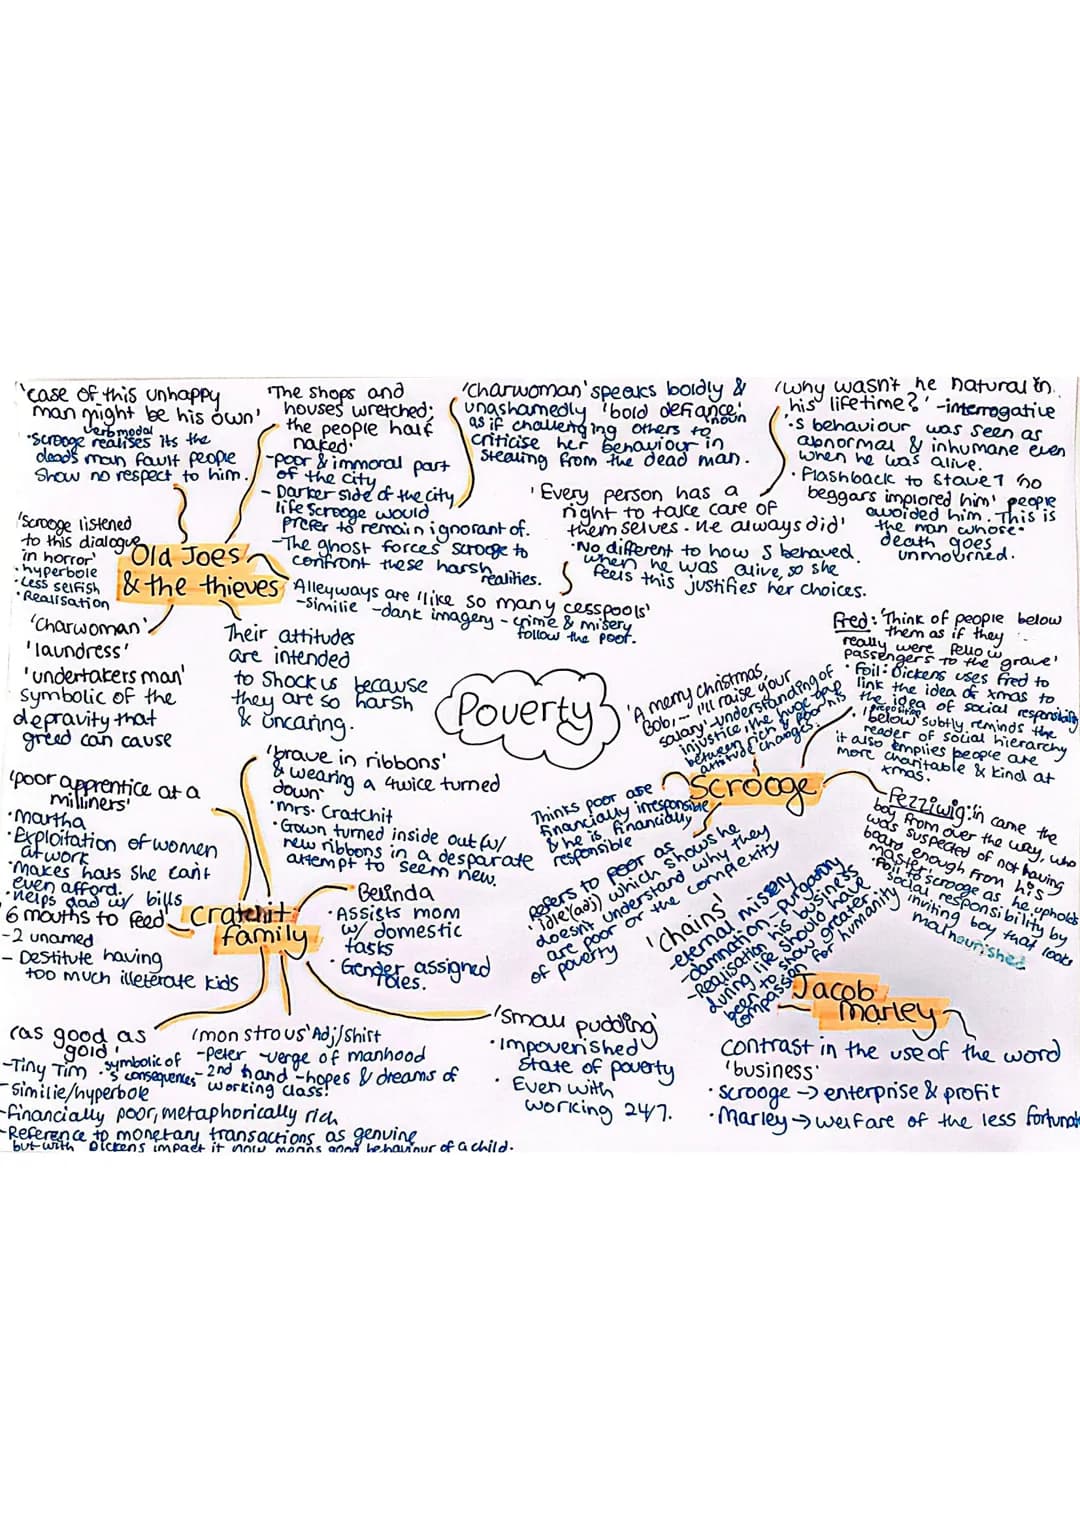 'case of this unhappy
man might be his own'
verb modal
·Scrooge realises its the
deads man fault people
show no respect to him.
'The shops and
houses wretched;
the people half
naked'
-poor & immoral part
of the city
- Darker side of the city
life Scrooge would
prefer to remain ignorant of.
-The ghost forces Scrooge to
confront these harsh
realities.
'Charwoman' speaks boldly &
unashamedly 'bold defiance'
noun
as if challenging others to
criticise her behaviour in
stealing from the dead man.
'why wasn't he natural in
his lifetime?' -interrogative
·'s behaviour was seen as
abnormal & inhumane even
when he was alive.
· Flashback to Stave 1 'no
beggars implored him' people
avoided him. This is
the man whose
death goes
unmourned.
'Every person has a
right to take care of
themselves. He always did'
·No different to how S behaved
when he was alive, so she
feels this justifies her choices.
'Scrooge listened
to this dialogue
in horror'
·hyperbole
·Less selfish
·Realisation
Old Joes
& the thieves
Alleyways are 'like so many cesspools'
-similie -dank imagery - crime & misery
follow the poor.
'Charwoman'
'laundress'
'undertakers man'
symbolic of the
depravity that
greed can cause
Their attitudes
are intended
to shock us because
they are so harsh
& uncaring.
Poverty
'A merry christmas,
Bob!-- I'll raise your
salary' -understanding of
injustice, the huge gap
between rich & poor his
attitude changes.
Fred: 'Think of people below
them as if they
really were fellow
passengers to the grave'
· Foil: Dickens uses Fred to
link the idea of xmas to
the idea of social responsibility
preposition
· 'below' subtly reminds the
reader of social hierarchy
it also implies people are
more charitable & kind at
xmas.
Scrooge
Thinks poor are
financially irresponsible
& he is financially
responsible
Refers to poor as
'idle' (adj) which shows he
doesnt understand why they
are poor or the complexity
of poverty
Fezziwig: in came the
boy from over the way, who
was suspected of not having
board enough from his
master'
·Foil to scrooge as he upholds
social responsibility by
inviting boy that looks
malnourished
'poor apprentice at a
milliners'
·Martha
·Exploitation of women
at work
·Makes hats she cant
even afford.
·Helps dad w/ bills
'brave in ribbons'
& wearing a twice turned
down'
·Mrs. Cratchit
·Gown turned inside out (w/
new ribbons in a desparate
attempt to seem new.
Belinda
·Assists mom
w/ domestic
tasks
·Gender assigned
roles.
6 mouths to feed
-2 unamed
- Destitute having
too much illeterate kids
Cratchit
family
'chains'
-eternal misery
-damnation -purgatory
-Realisation his business
during life should have
been to show greater
compassion for humanity
Jacob
Marley
contrast in the use of the word
'business'
·scrooge -> enterprise & profit
·Marley -> welfare of the less fortunate
'as good as
gold'
-Tiny Tim ·symbolic of
's consequences
-Similie/hyperbole
-financially poor, metaphorically rich
-Reference to monetary transactions as genuine
but with Dickens impact it now means good behaviour of a child.
'monstrous' Adj/shirt
-Peter -verge of manhood
-2nd hand -hopes & dreams of
working class!
'small pudding'
·Impoverished
state of poverty
· Even with
working 24/7.